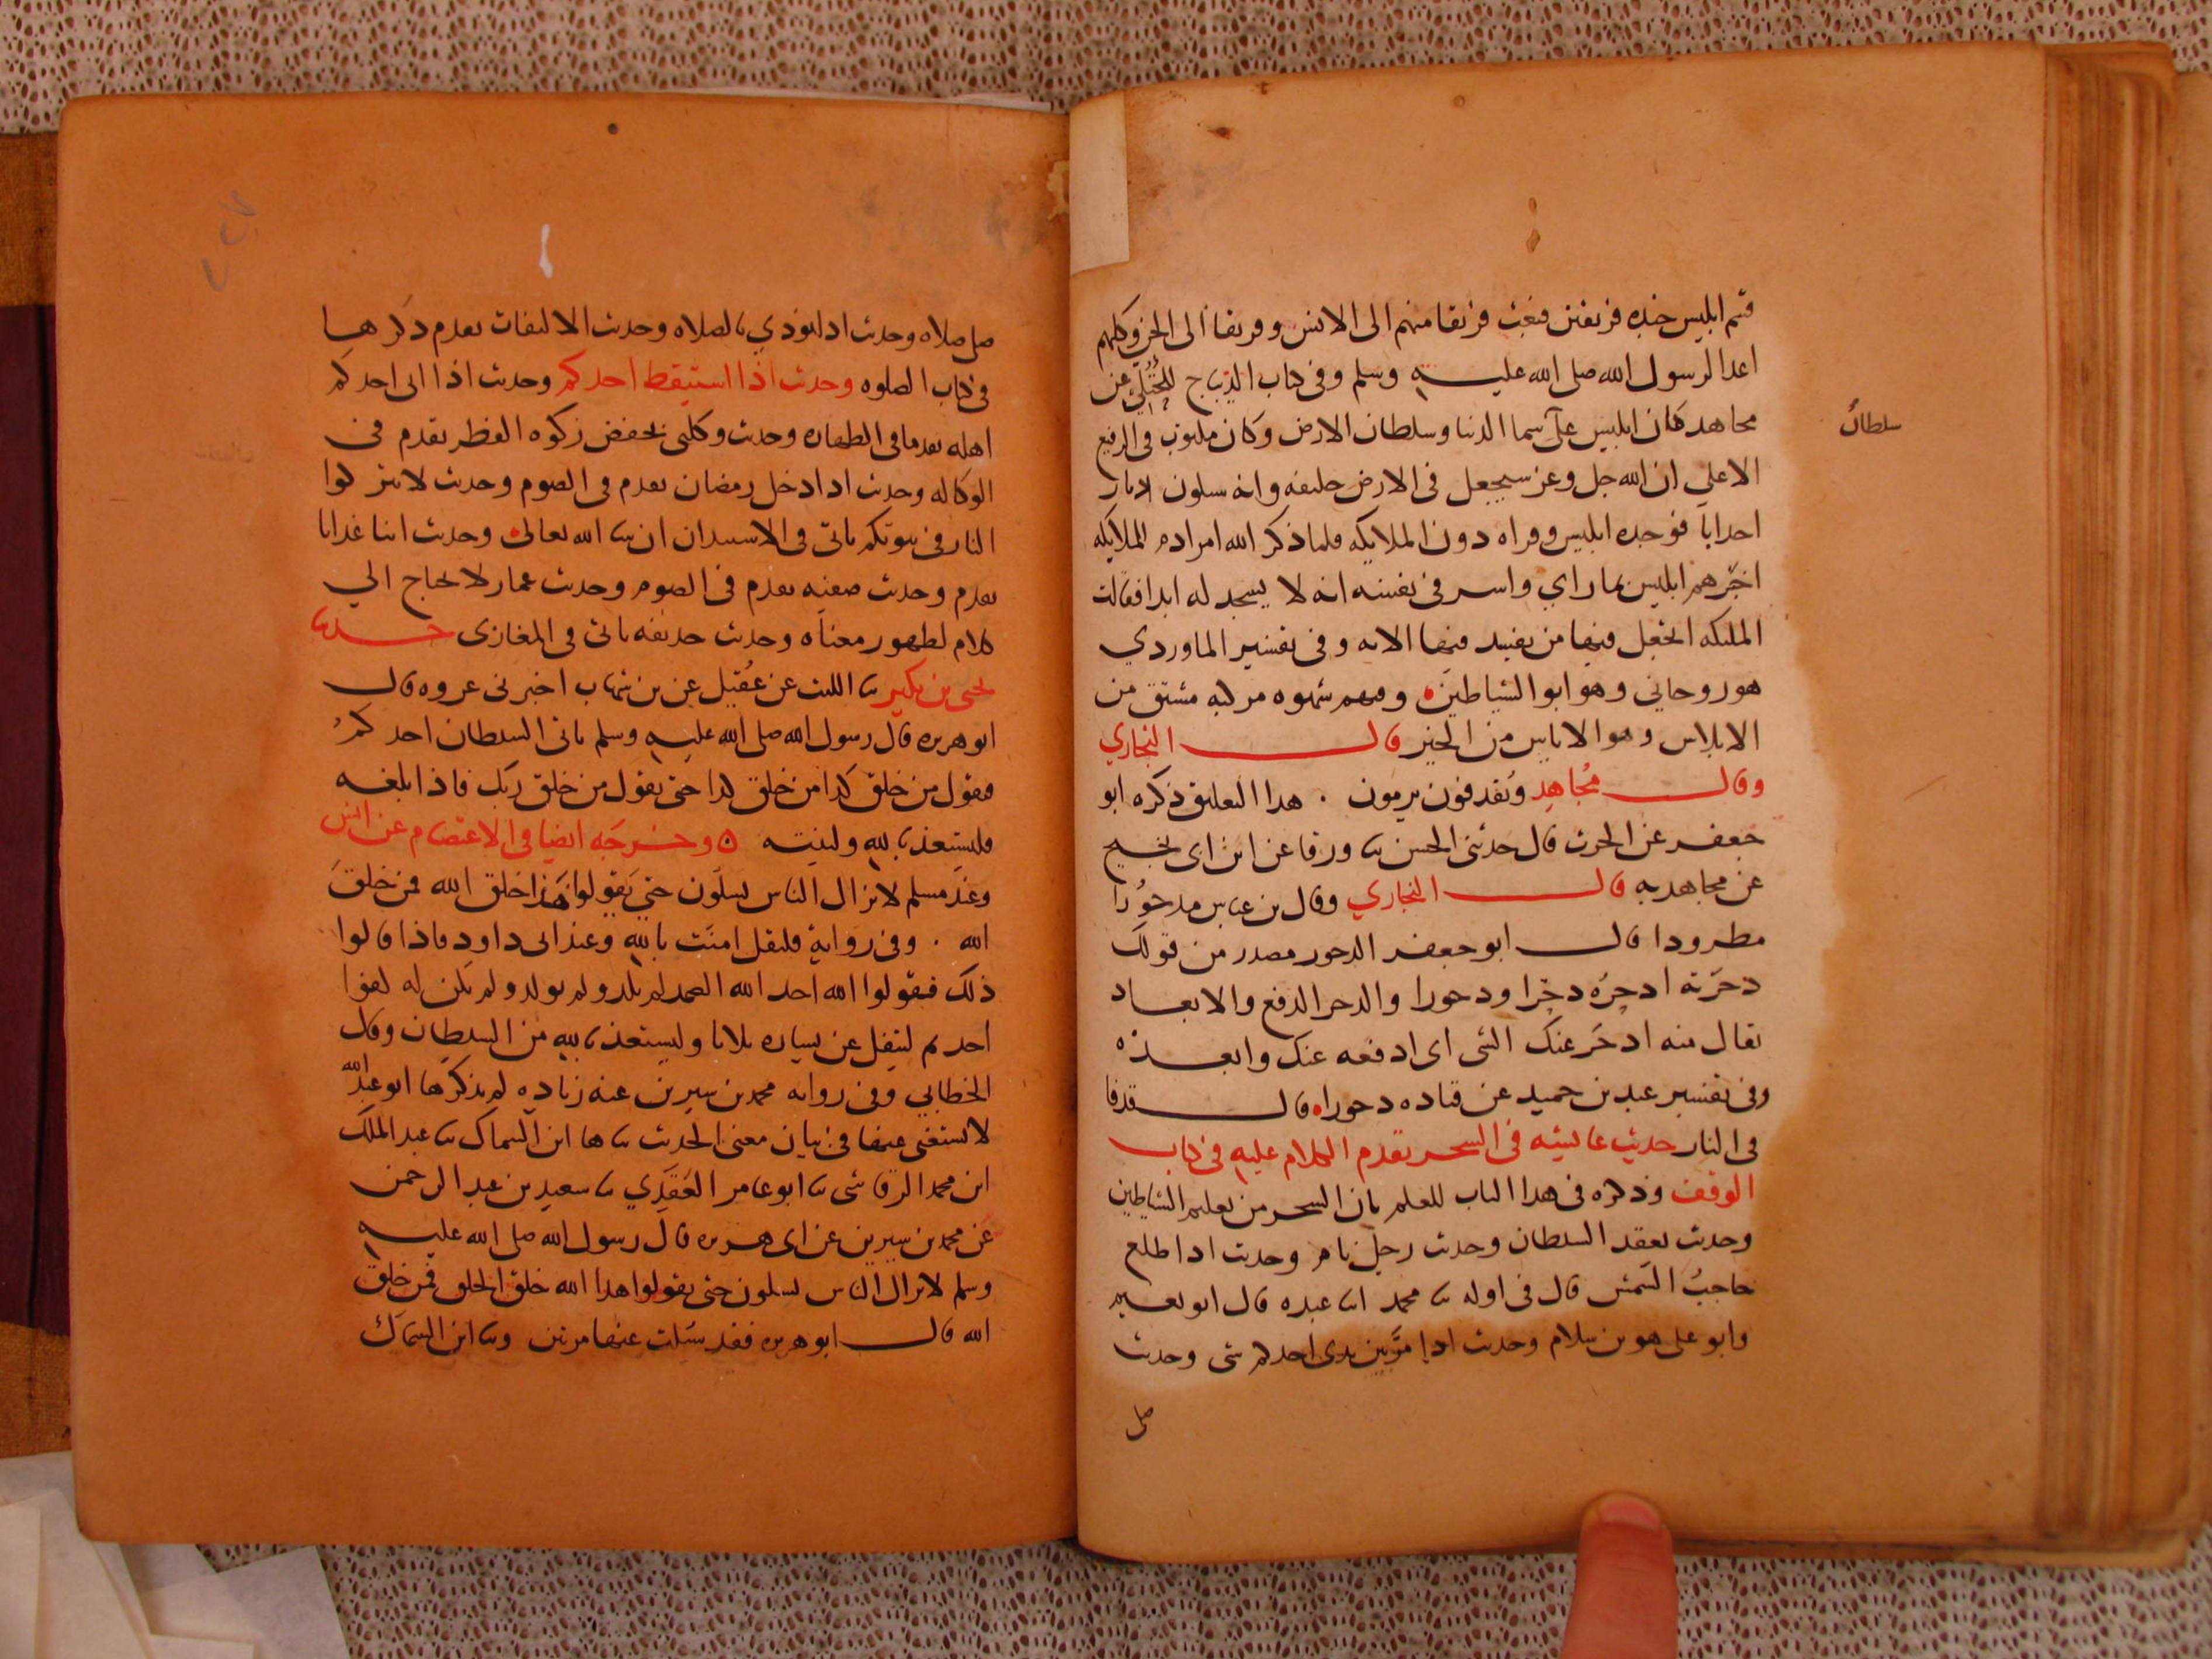 قسم ابليس جنده فريقين فبعث فريقا منهم الى الانس وفريقا الى الجن وكلهم
اعدا لرسول الله صلى الله عليه وسلم وفى كتاب الديباج للختلي عن
مجاهد كان ابليس على سما الدنيا وسلطان الارض وكان مكتوب فى الرفيع
سلطانُ
الاعلى ان الله جل وعز سيجعل فى الارض خليفه وانه سيكون
فوجده ابليس وقراه دون الملايكه فلما ذكر الله امر ادم للملايكه
اخبرهم ابليس بما راي واسر فى نفسه انه لا يسجد له ابدا فقالت
المليكه اتجعل فيها من يفسد فيها الايه وفى تفسير الماوردي
هو روحاني وهو ابو الشياطين ومنهم شهوه مركبه مشتق من
الابلاس وهو الاياس من الخير قال البخاري
وقال مجاهد ويقدفون يرمون . هدا التعليق ذكره ابو
جعفر عن الحرث قال حدثنى الحسن ثنا ورقا عن ابن ابى نجيح
عن مجاهد به قال البخاري وقال بن عباس مدحورا
مطرودا قال ابو جعفر الدحور مصدر من قولك
دحرته ادحره دحرا ودحورا والدحر الدفع والابعاد
يقال منه ادحر عنك الشى اى ادفعه عنك وابعده
وفى تفسير عبد بن حميد عن قتاده دحورا قال قدفا
فى النار حديث عايشه فى السحر تقدم الكلام عليه فى كتاب
الوقف وذكره فى هدا الباب للعلم بان السحر من تعليم الشياطين
وحديث يعقد الشيطان وحديث رجل نام وحديث ادا طلع
حاجبُ الشمس قال فى اوله ثنا محمد ابنا عبده قال ابو نعيم
وابو على هو بن سلام وحديث ادا مر بين يدى احدكم شى وحديث
صل
صل صلاه وحديث ادا نودي بالصلاه وحديث الالتفات تقدم ذكرها
فى كتاب الصلوه وحديث اذا استيقظ احدكم وحديث اذا اتى احدكم
اهله تقدما فى الطهاره وحديث وكلنى بحفض زكوه الفطر تقدم فى
الوكاله وحديث ادا دخل رمضان تقدم فى الصوم وحديث لا تتركوا
النار فى بيوتكم ياتى فى الاستيدان ان شا الله تعالى وحديث اتنا غدانا
تقدم وحديث صفيه تقدم فى الصوم وحديث عمار لا يحتاج الي
كلام لظهور معناه وحديث حديفه ياتى فى المغازى حدثنا
يحيى بن بكير ثنا الليث عن عُقيل عن بن شهاب اخبرنى عروه قال
ابو هريره قال رسول الله صلى الله عليه وسلم ياتى الشيطان احدكم
فيقول من خلق كدا من خلق كدا حتى يقول من خلق ربك فاذا بلغه
فليستعذ بالله ولينته وخرجه ايضا فى الاعتصام عن انس
وعند مسلم لا يزال الناس يسلون حتى يقولوا هذا خلق الله فمن خلق
الله . وفى رواية فليقل امنت بالله وعند ابى داود فاذا قالوا
ذلك فقولوا الله احد الله الصمد لم يلد ولم يولد ولم يكن له كفوا
احد ثم ليتفل عن يساره ثلاثا وليستعذ بالله من الشيطان وقال
الخطابي وفى روايه محمد بن سيرين عنه زياده لم يذكرها ابو عبد الله
لا يستغنى عنها فى بيان معنى الحديث ثنا ها ابن السماك ثنا عبد الملك
ابن محمد الرقاشى ثنا ابو عامر العَقَدي ثنا سعيد بن عبد الرحمن
عن محمد بن سيرين عن ابى هريره قال رسول الله صلى الله عليه
وسلم لا يزال الناس يسلون حتى يقولوا هدا الله خلق الخلق فمن خلق
الله قال ابو هريره فقد سيلت عنها مرتين وثنا ابن السماك